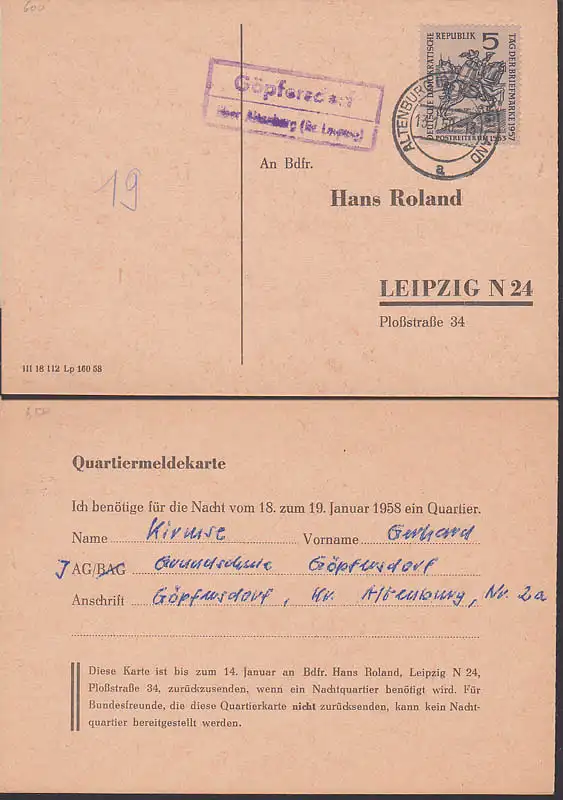 600
Göpfersdorf
über Altenburg (Bz Leipzig)
DEUTSCHE DEMOKRATISCHE
REPUBLIK 5
TAG DER BRIEFMARKE 1957
POSTREITER UM 1563
ALTENBURG
a
19
An Bdfr.
Hans Roland
LEIPZIG N 24
Ploßstraße 34
III 18 112 Lp 160 58
Quartiermeldekarte
Ich benötige für die Nacht vom 18. zum 19. Januar 1958 ein Quartier.
Name Kirmse Vorname Gerhard
J AG/BAG Grundschule Göpfersdorf
Anschrift Göpfersdorf, Kr. Altenburg, Nr. 2a
Diese Karte ist bis zum 14. Januar an Bdfr. Hans Roland, Leipzig N 24,
Ploßstraße 34, zurückzusenden, wenn ein Nachtquartier benötigt wird. Für
Bundesfreunde, die diese Quartierkarte nicht zurücksenden, kann kein Nacht-
quartier bereitgestellt werden.